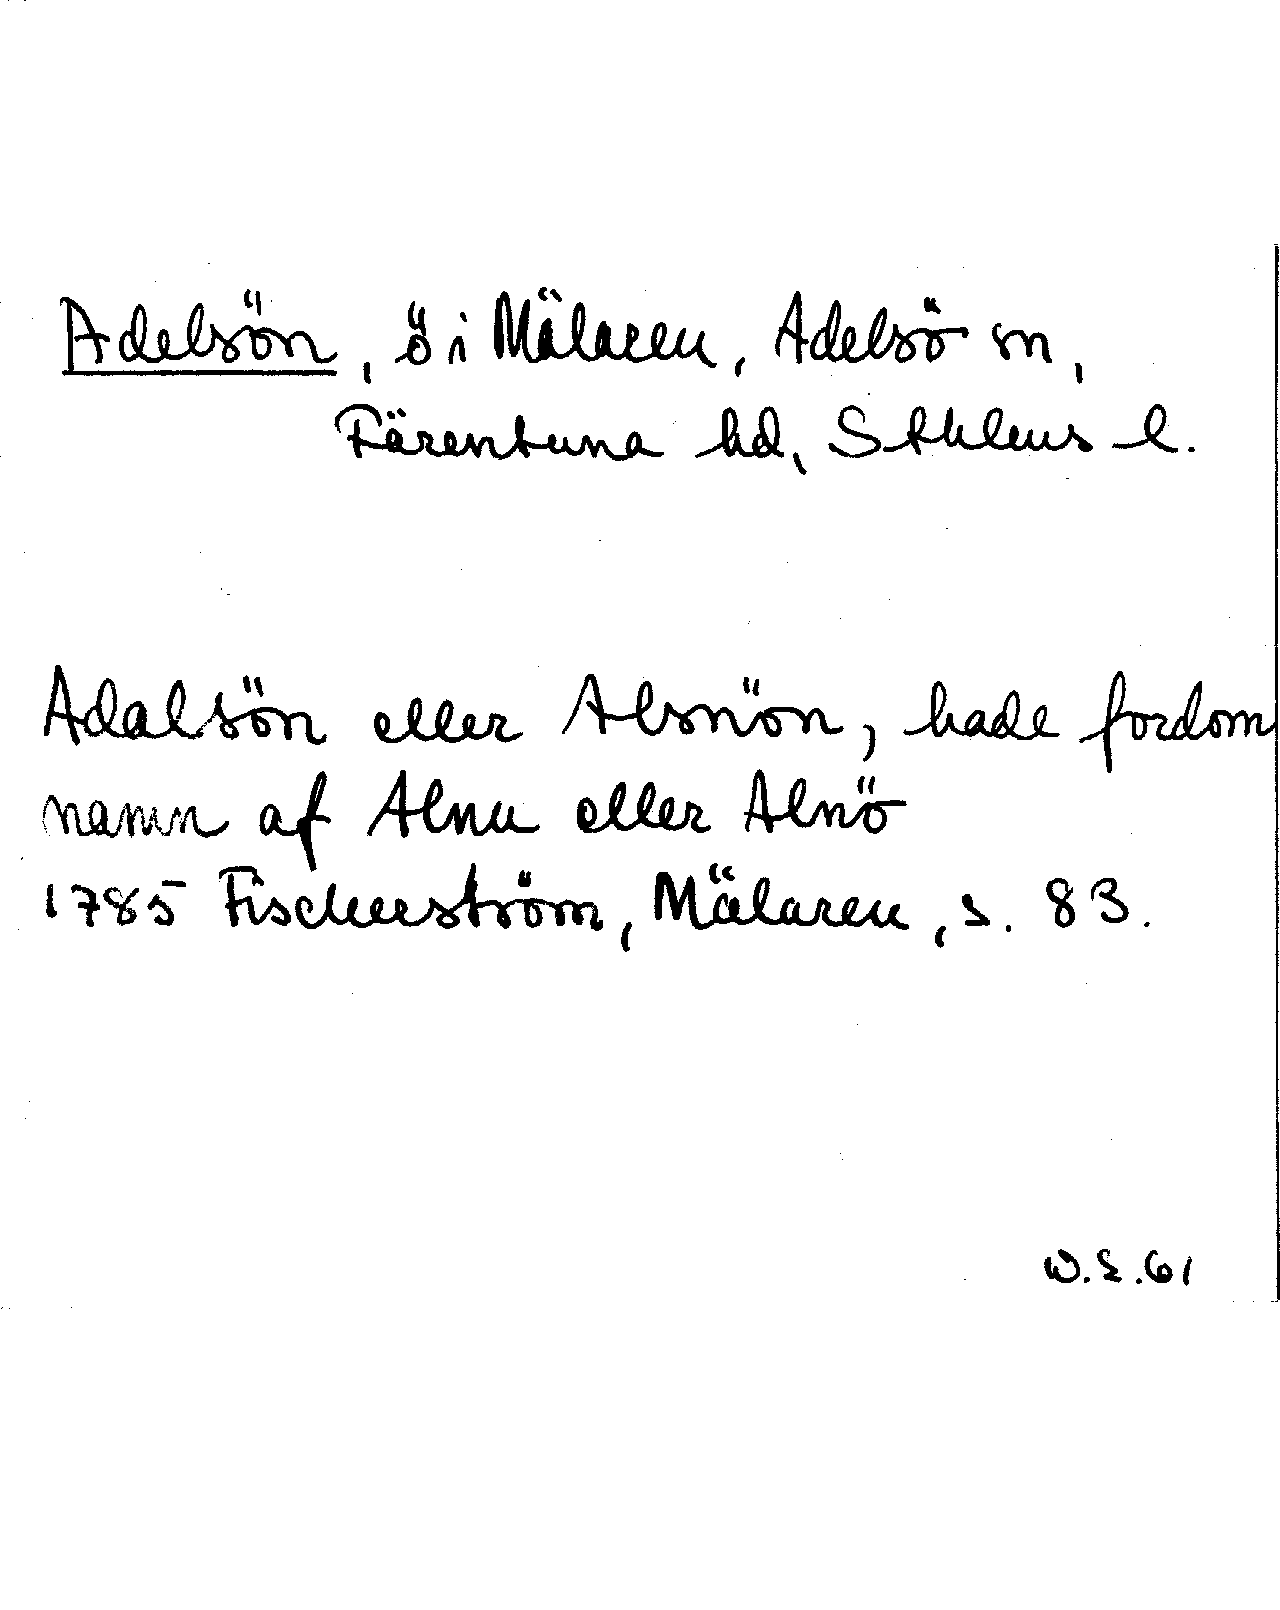 Adelsön, ö i Mälaren, Adelsö sn,
Färentuna hd, Sthlms l.
Adalsön eller Alsnön, hade fordom
namn af Alnu eller Alnö
1785 Fischerström, Mälaren, s. 83.
W.S.61